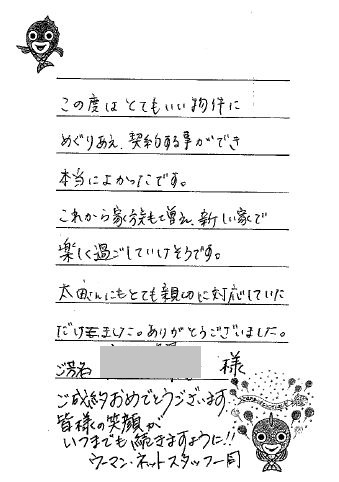 この度はとてもいい物件に
めぐりあえ、契約する事ができ
本当によかったです。
これから家族も増え、新しい家で
楽しく過ごしていけそうです。
太田さんにもとても親切に対応していた
だけました。ありがとうございました。
ご芳名 様
ご成約おめでとうございます
皆様の笑顔が
いつまでも続きますように!!
ウーマン・ネットスタッフ一同